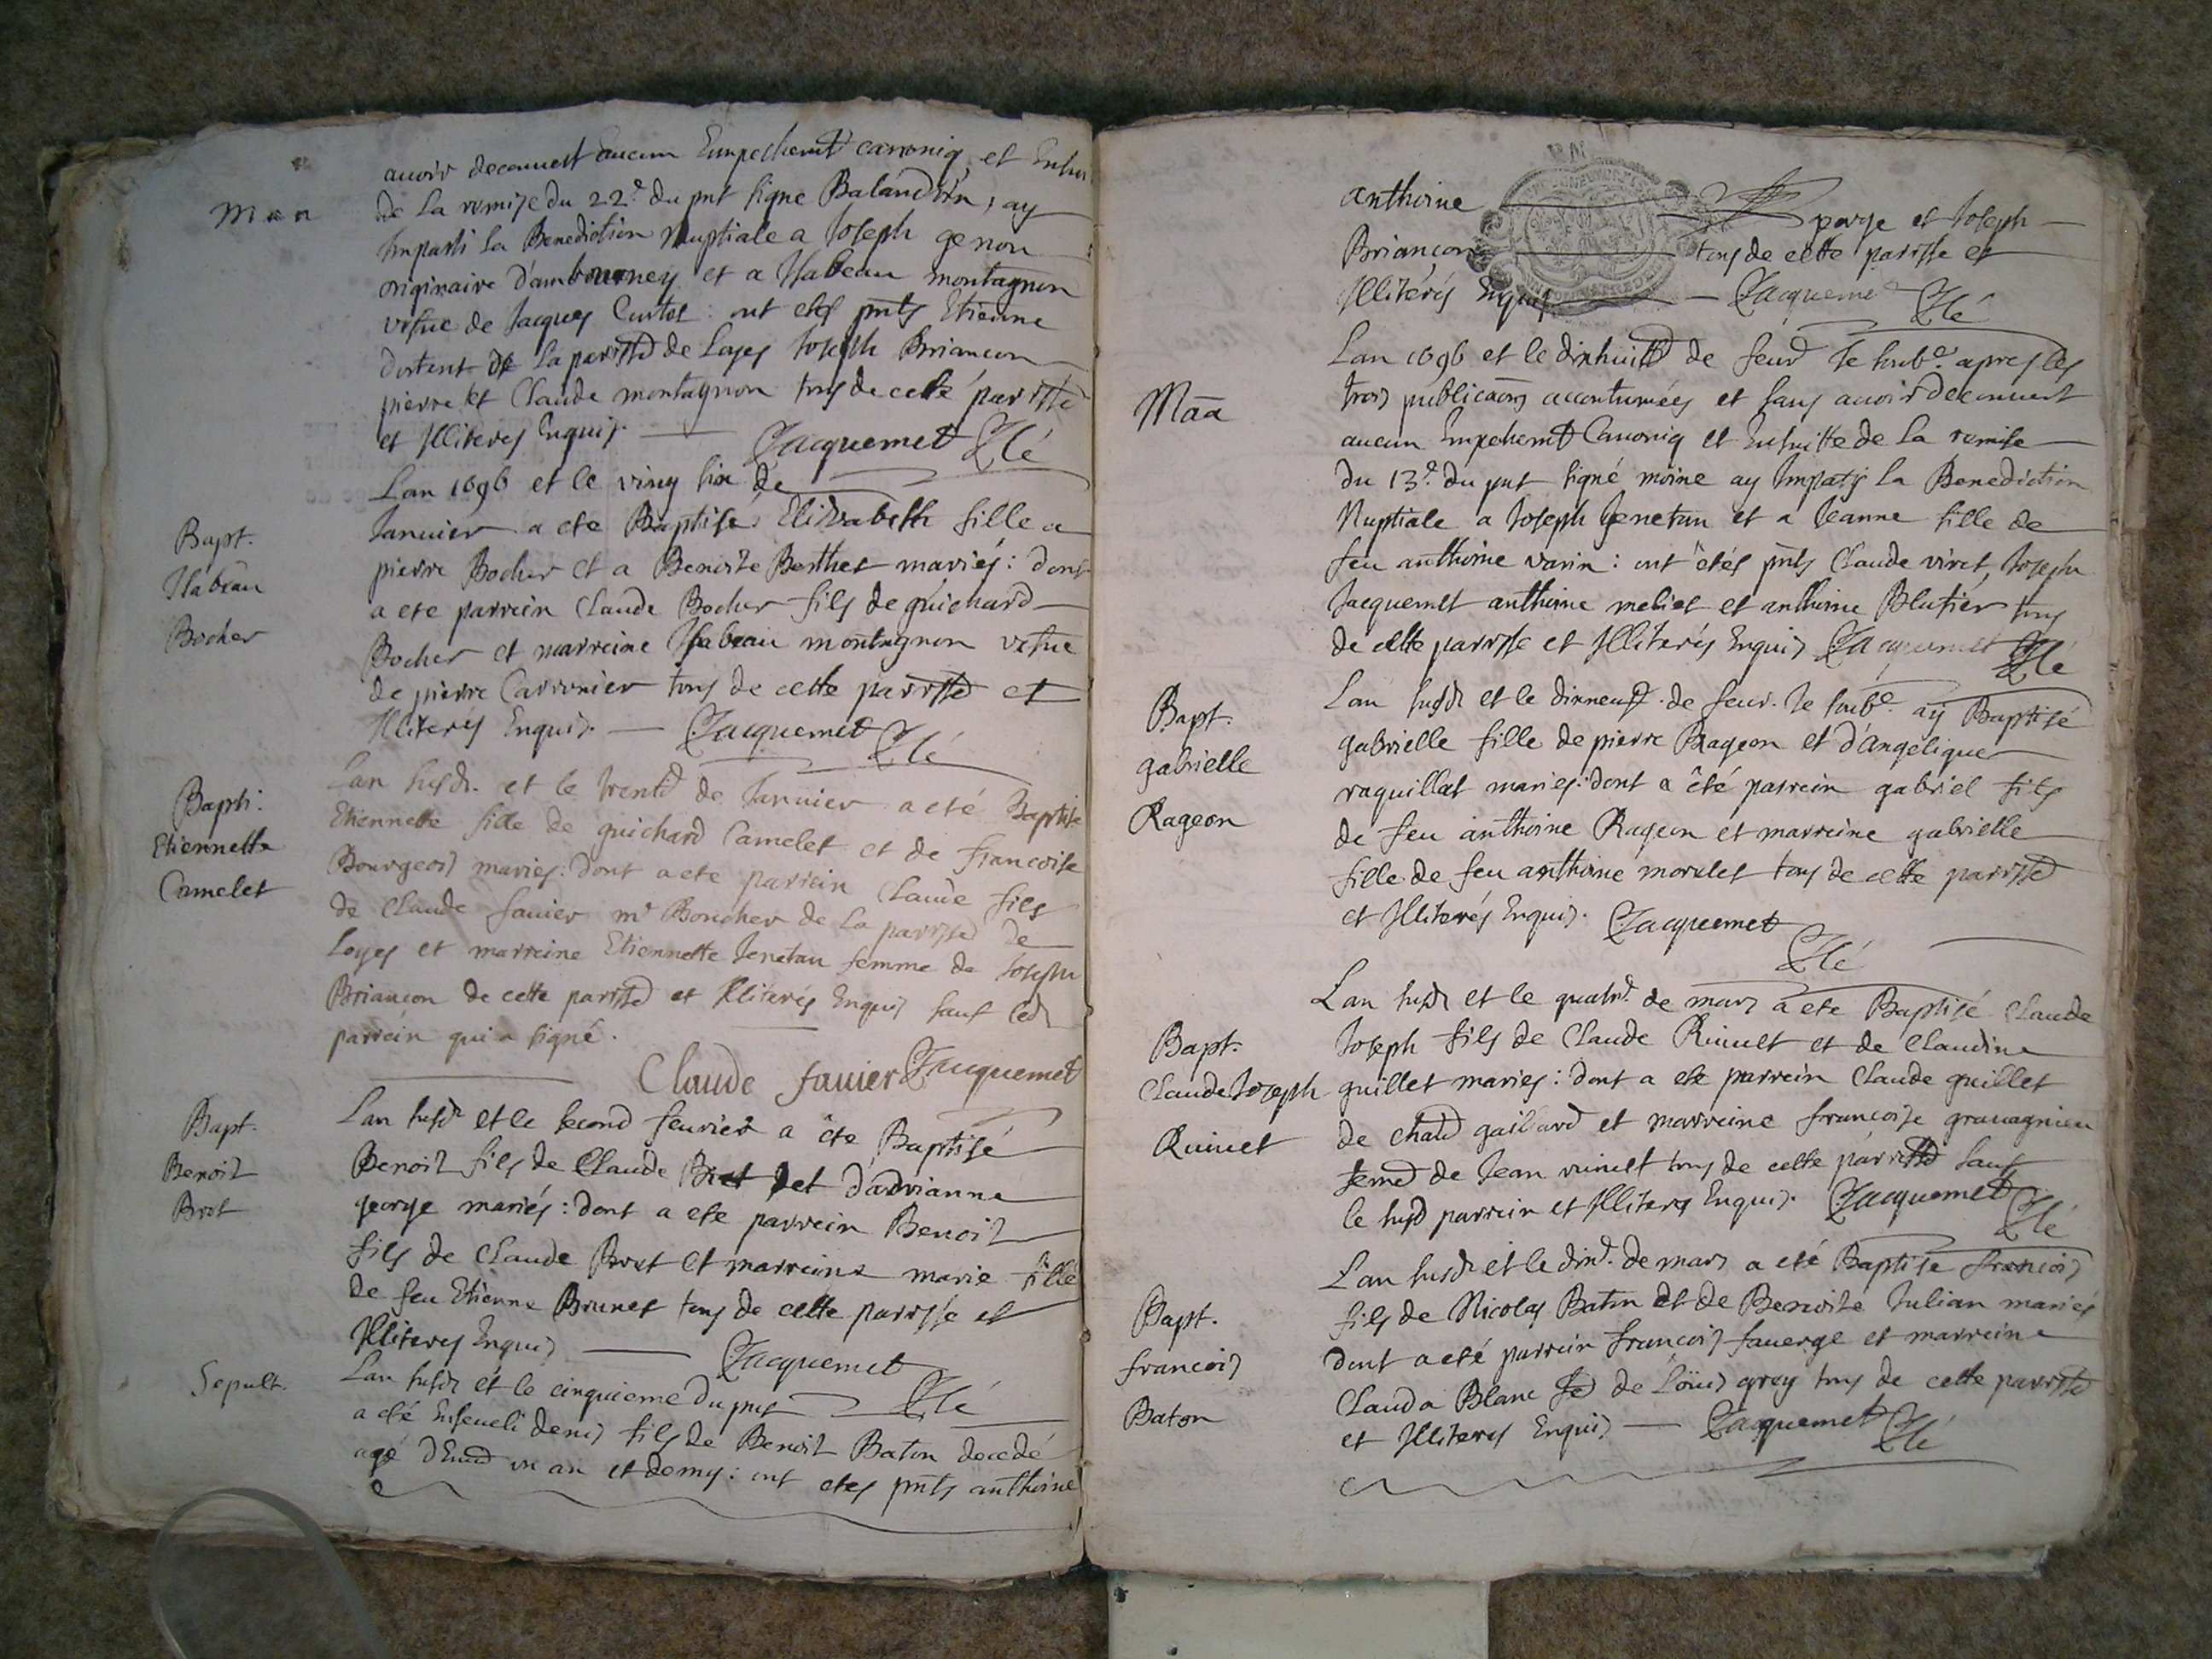 avoir decouvert aucun Empechemt canoniq et Ensui
Maa
de La remise du 22e du pnt signe Balandrin, ay
Imparti la Benediction Nuptiale a Joseph genon
originaire d'ambournay et a Isabeau montagnon
vefue de Jacques Curtet : ont etes pnts Etienne
de La parisse de Loyes Joseph Briancon
pierre et Claude montagnon tous de cette parisse
et Illiteres Enquis. Jacquemet
Lan 1696 et le vingt six de
Bapt.
Isabeau
Bocher
Janvier a ete Baptisé Elizabeth fille a
pierre Bocher et a Benoite Berthet mariés : dont
a ete parrein Claude Bocher fils de guichard
Bocher et marreine Isabeau montagnon vefue
de pierre Carronier tous de cette parisse et
Illiterés Enquis. Jacquemet
Bapti.
Etiennette
Camelet
Lan susd. et le trente de Janvier a eté Baptise
Etiennette fille de guichard Camelet et de francoise
Bourgeois maries : dont a ete parrein Claude fils
de Claude favier mr Boucher de La parisse de
Loyes et marreine Etiennette Jenetan femme de Joseph
Briancon de cette parisse et Illiterés Enquis sauf led
parrein qui a signé.
Claude favier Jacquemet
Bapt.
Benoit
Brot
Lan susd et le second feurier a ête Baptisé
Benoit fils de Claude et d'adrianne
george mariés : dont a ete parrein Benoit
fils de Claude Brot et marreine marie fille
de feu Etienne Brunet tous de cette parisse et
Illiteres Enquis Jacquemet
Sepult.
Lan susd et le cinquieme du pnt
a eté Enseveli denis fils de Benoit Baton decedé
agé un an et demy : ont etes pnts anthoine
anthoine george et Joseph
Briançon tous de cette parisse et
Illiterés Enquis Jacquemet
Maa
Lan 1696 et le dixhuit de feur Je soube apres les
trois publicaons accoutumées et sans avoir decouvert
aucun Empechemt Canoniq et Ensuitte de La remise
du 13e du pnt signé moine ay Imparty La Benediction
Nuptiale a Joseph Jenetan et a Jeanne fille de
feu anthoine varin : ont êtés pnts Claude viret, Joseph
Jacquemet anthoine meliet et anthoine Blutier tous
de cette parisse et Illiterés Enquis Jacquemet
Bapt.
gabrielle
Rageon
Lan susd et le dixneuf de feur. Je soube. ay Baptisé
gabrielle fille de pierre Rageon et d'Angelique
raquillat maries : dont a êté parrein gabriel fils
de feu anthoine Rageon et marreine gabrielle
fille de feu anthoine morelet tous de cette parisse
et Illiterés Enquis. Jacquemet
Bapt.
Claude Joseph
Ruinet
Lan susd et le quatre de mars a ete Baptisé Claude
Joseph fils de Claude Ruinet et de Claudine
guillet maries : dont a ete parrein Claude guillet
de gailard et marreine francoise gravagnieu
feme de Jean ruinet tous de cette parisse sauf
le susd parrein et Illiteres Enquis. Jacquemet
Bapt.
francois
Baton
Lan susd et le dix. de mars a eté Baptise francois
fils de Nicolas Baton et de Benoite Julian mariés
dont a eté parrein francois faverge et marreine
Clauda Blanc fe de Loüis grey tous de cette parisse
et Illiteres Enquis Jacquemet